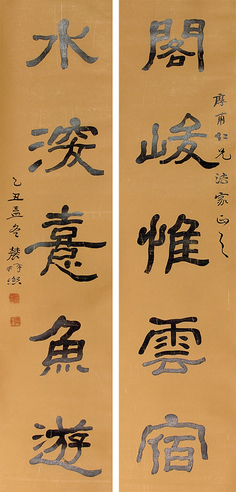 閣峻惟雲宿
摩甫仁兄法家正之
水深意魚遊
乙丑孟冬